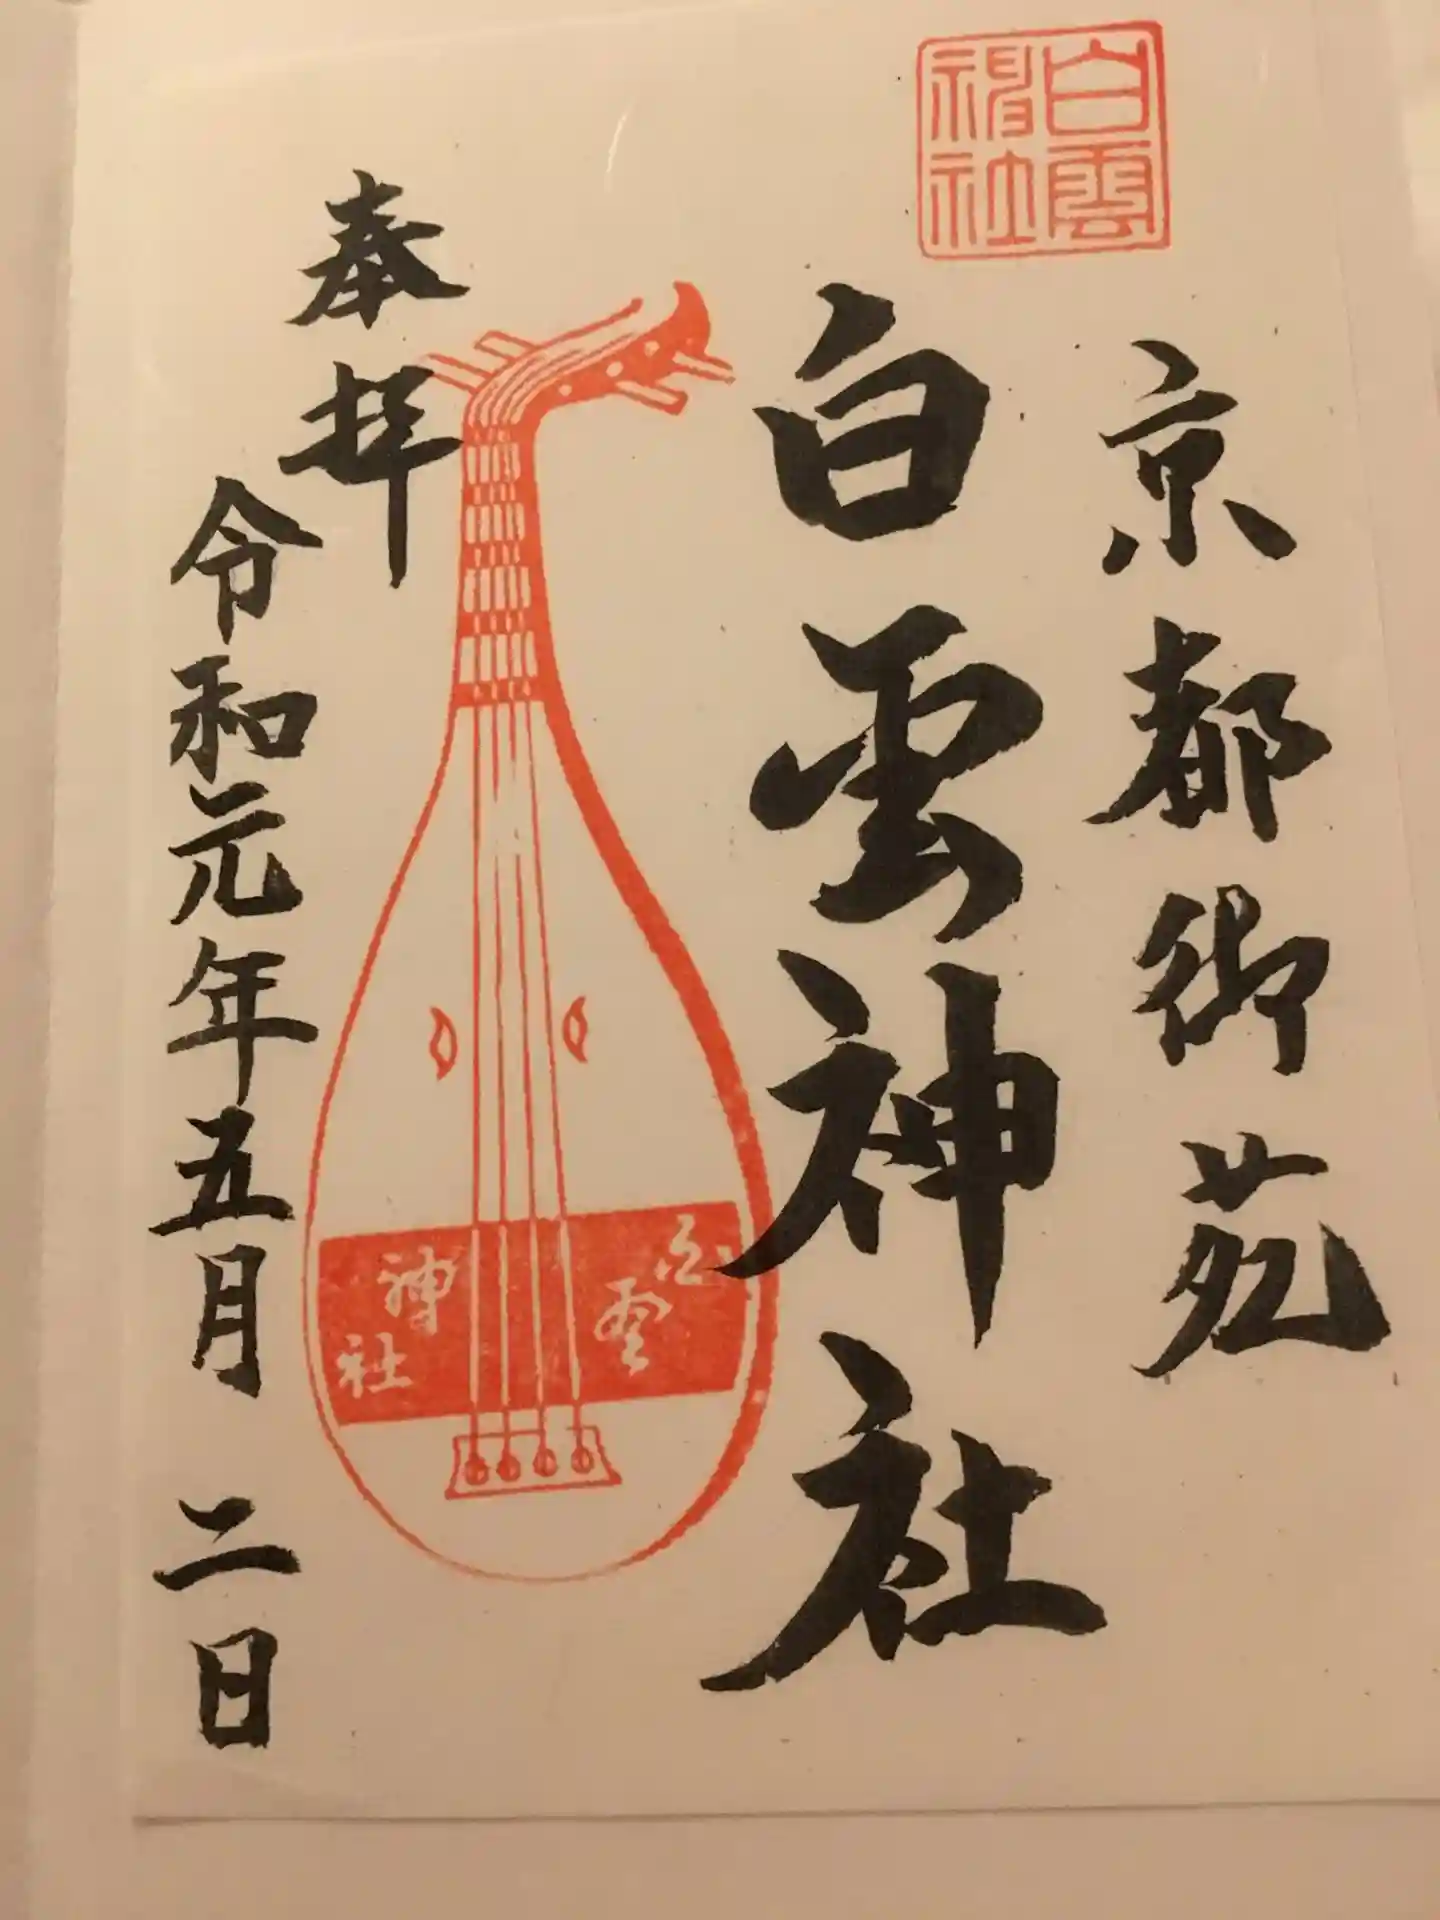 白雲
神社
京都御苑
白雲神社
奉拝
白雲
神社
令和元年五月二日